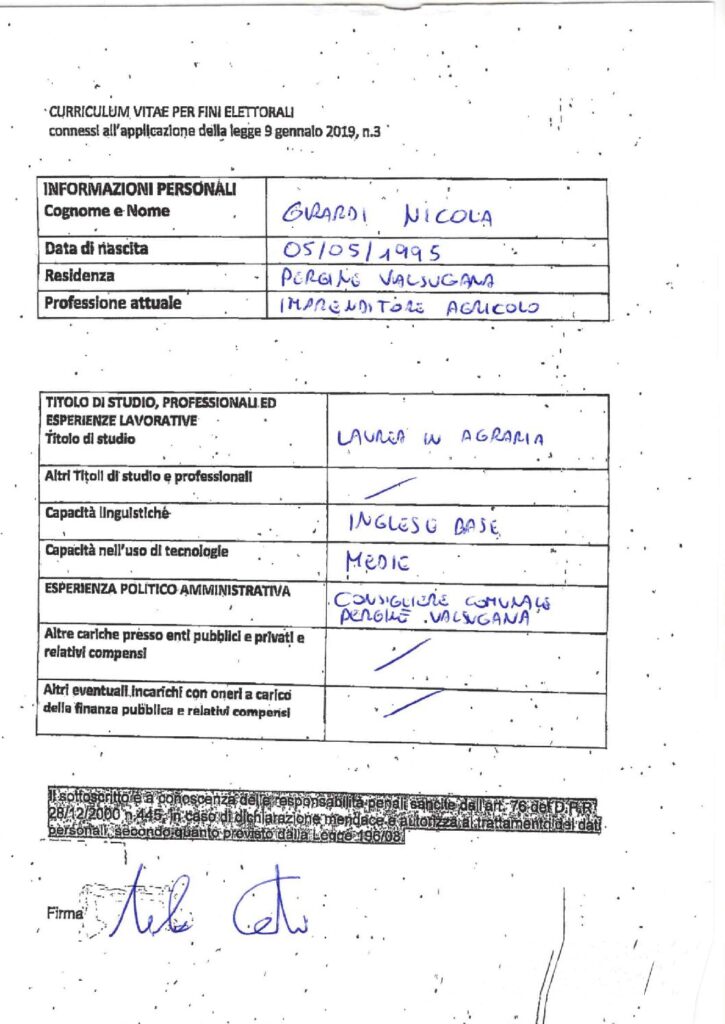 CURRICULUM VITAE PER FINI ELETTORALI
connessi all'applicazione della legge 9 gennaio 2019, n.3
INFORMAZIONI PERSONALI
Cognome e Nome GIRARDI NICOLA
Data di nascita 05/05/1995
Residenza PERGINE VALSUGANA
Professione attuale IMPRENDITORE AGRICOLO
TITOLO DI STUDIO, PROFESSIONALI ED
ESPERIENZE LAVORATIVE
Titolo di studio LAUREA IN AGRARIA
Altri Titoli di studio e professionali /
Capacità linguistiche INGLESE BASE
Capacità nell'uso di tecnologie MEDIE
ESPERIENZA POLITICO AMMINISTRATIVA CONSIGLIERE COMUNALE
PERGINE VALSUGANA
Altre cariche presso enti pubblici e privati e
relativi compensi /
Altri eventuali incarichi con oneri a carico
della finanza pubblica e relativi compensi /
Il sottoscritto è a conoscenza delle responsabilità penali sancite dall'art. 76 del D.P.R.
28/12/2000 n.445, in caso di dichiarazione mendace e autorizza al trattamento dei dati
personali, secondo quanto previsto dalla Legge 196/08.
Firma